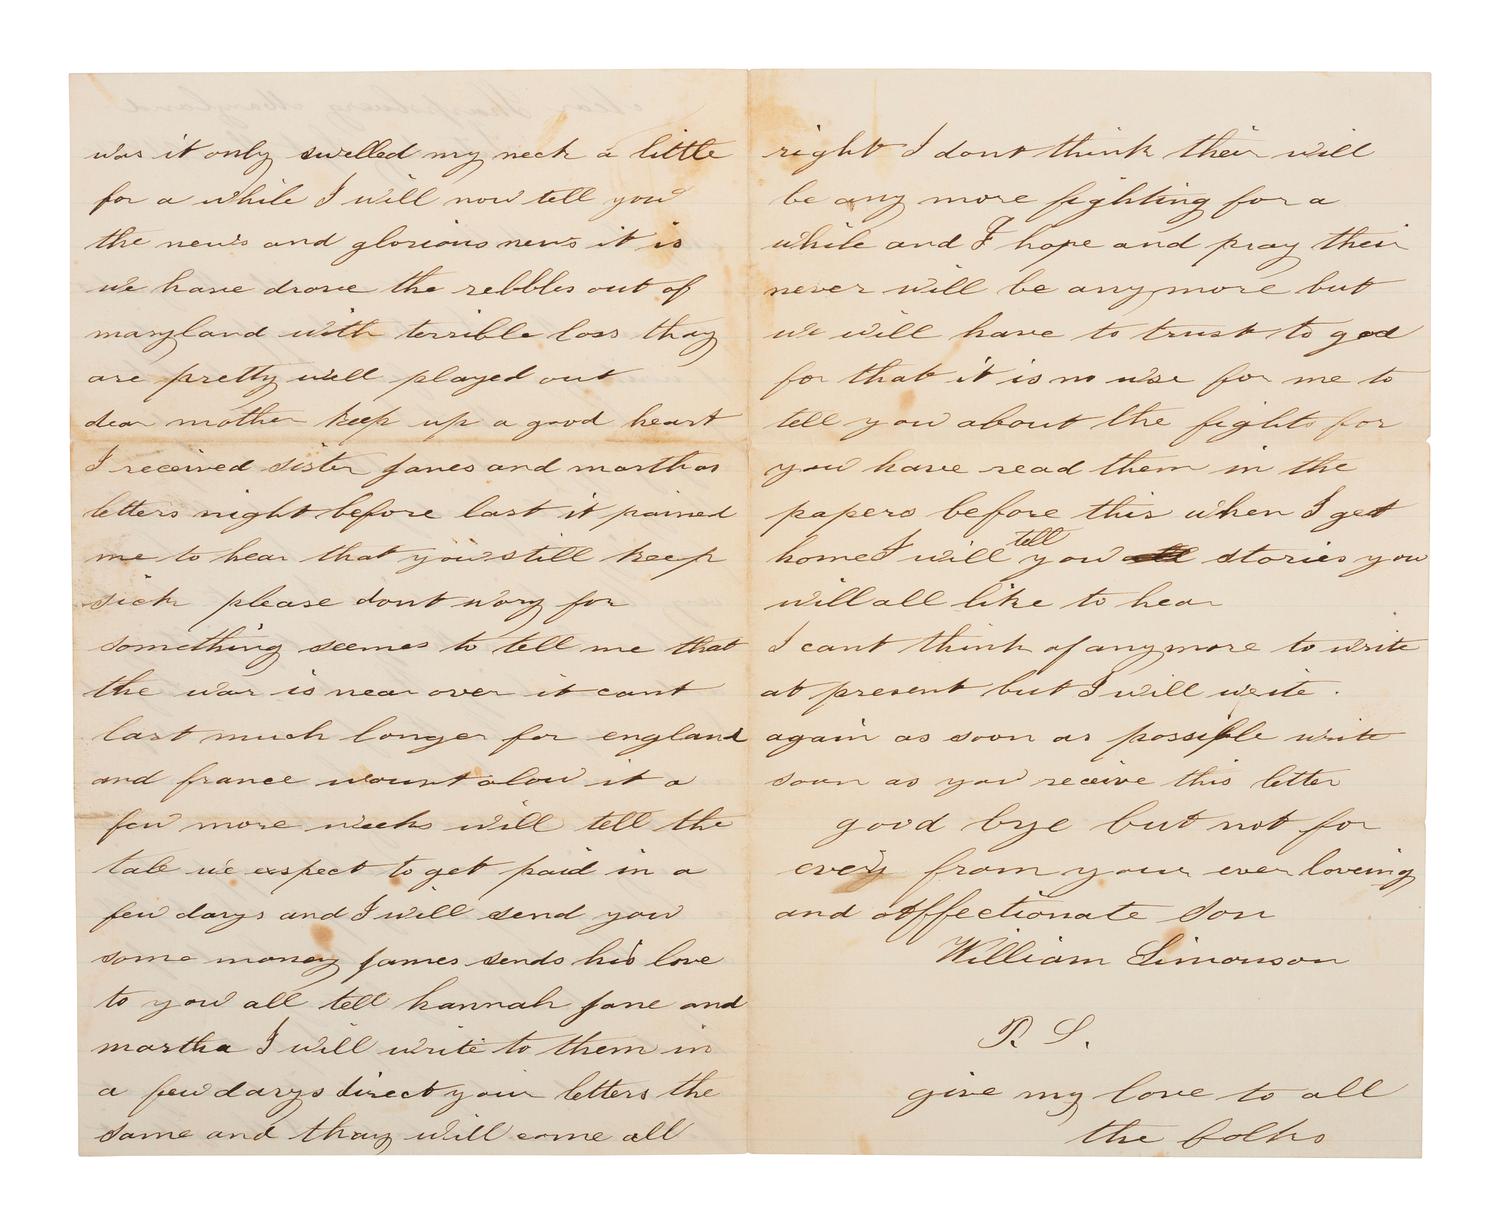 was it only swelled my neck a little
for a while I will now tell you
the news and glorious news it is
we have drove the rebbles out of
maryland with terrible loss thay
are pretty well played out
dear mother keep up a good heart
I received sister janes and marthas
letters night before last it pained
me to hear that you still keep
sick please dont wory for
something seemes to tell me that
the war is near over it cant
last much longer for england
and france wount alow it a
few more weeks will tell the
tale we expect to get paid in a
few days and I will send you
some money james sends his love
to you all tell hannah jane and
martha I will write to them in
a few days direct your letters the
same and thay will come all
right I dont think their will
be any more fighting for a
while and I hope and pray their
never will be any more but
we will have to trust to god
for that it is no use for me to
tell you about the fights for
you have read them in the
papers before this when I get
home I will tell you stories you
will all like to hear
I cant think of any more to write
at present but I will write.
again as soon as possible write
soon as you receive this letter
good bye but not for
every from your ever loveing
and affectionate son
William Simonson
P. S.
give my love to all
the folks